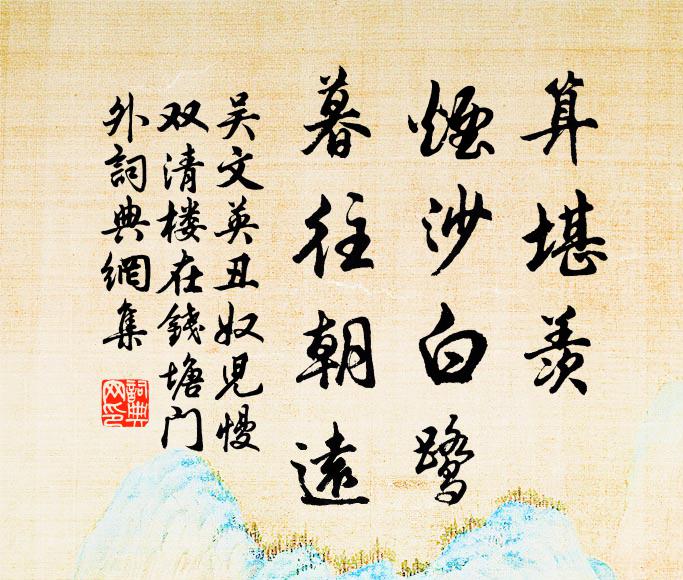 算堪羡
煙沙白鹭
暮往朝遠
吴文英丑奴児慢
双清楼在錢塘门
外詞典網集
詞典网印